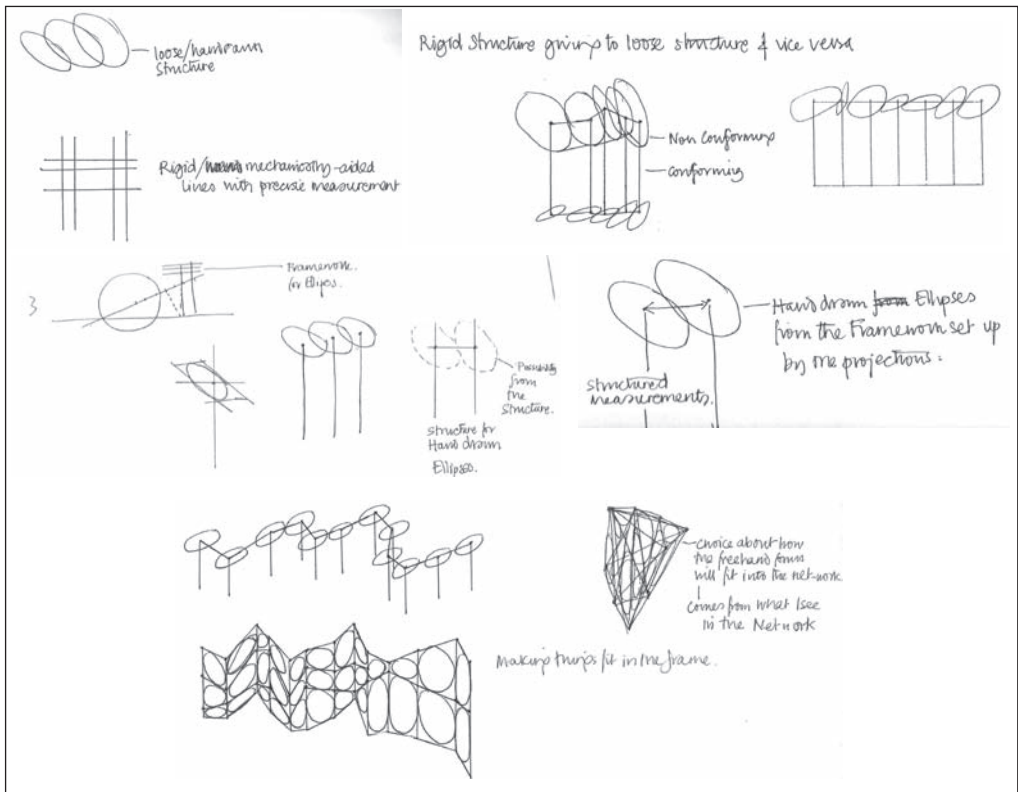 loose/handrawn
structure
Rigid/ mechanically-aided
lines with precise measurement
Rigid Structure giving to loose structure & vice versa
Non Conforming
Conforming
3
Framework
for Ellipses.
Possibility
from
the
structure.
Structure for
Hand drawn
Ellipses.
Hand drawn from Ellipses
from the Framework set up
by the projections.
Structured
measurements.
choice about how
the freehand forms
will fit into the net-work
comes from what I see
in the Network
Making things fit in the frame.